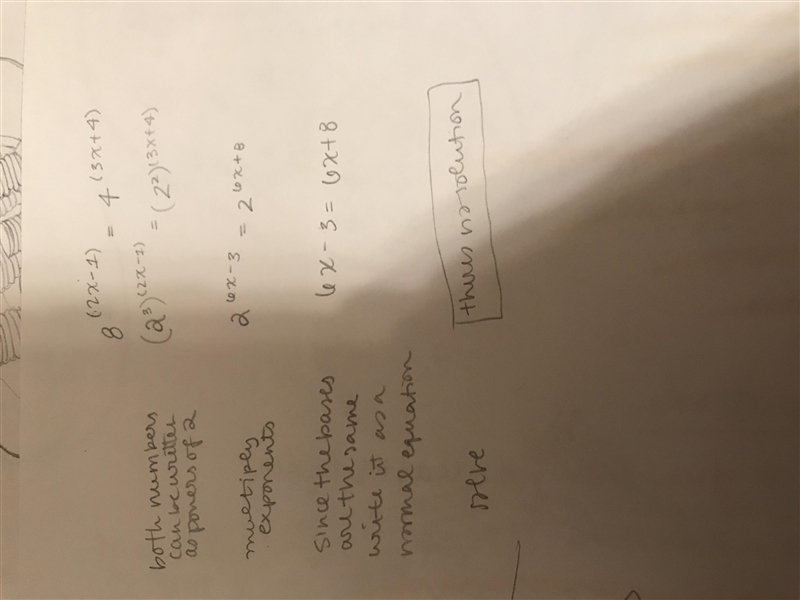 8^(2x-1) = 4^(3x+4)
both numbers
can be written
as powers of 2
(2^3)^(2x-1) = (2^2)^(3x+4)
multiply
exponents
2^6x-3 = 2^6x+8
since the bases
are the same
write it as a
normal equation
6x - 3 = 6x + 8
solve
theres no solution